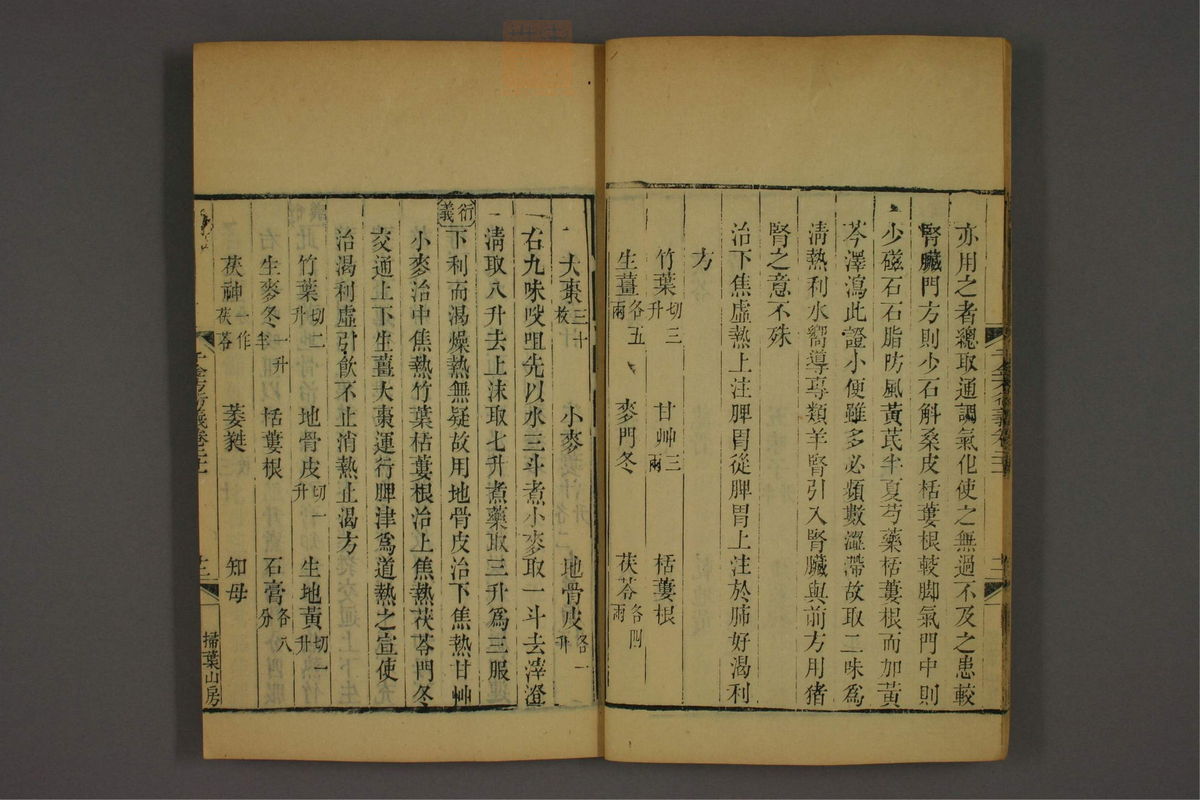 亦用之者總取通調氣化使之無過不及之患較
腎臟門方則少石斛桑皮栝蔞根較脚氣門中則
少磁石石脂防風黃芪半夏芍藥栝蔞根而加黃
芩澤瀉此證小便雖多必頻數澀滯故取二味爲
淸熱利水嚮導專類羊腎引入腎臟與前方用猪
腎之意不殊
治下焦虛熱上注脾胃從脾胃上注於肺好渴利
方
竹葉切三升 甘艸三兩 栝蔞根
生薑各五兩 麥門冬 茯苓各四兩
大棗三十枚 小麥 地骨皮各一升
右九味㕮咀先以水三斗煮小麥取一斗去滓澄
淸取八升去上沫取七升煮藥取三升爲三服
衍義
下利而渴燥熱無疑故用地骨皮治下焦熱甘艸
小麥治中焦熱竹葉栝蔞根治上焦熱茯苓門冬
交通上下生薑大棗運行脾津爲道熱之宣使
治渴利虛引飮不止消熱止渴方
竹葉切二升 地骨皮切一升 生地黃切一升
生麥冬一升半 栝蔞根 石膏各八分
茯神一作茯苓 萎蕤 知母
掃葉山房